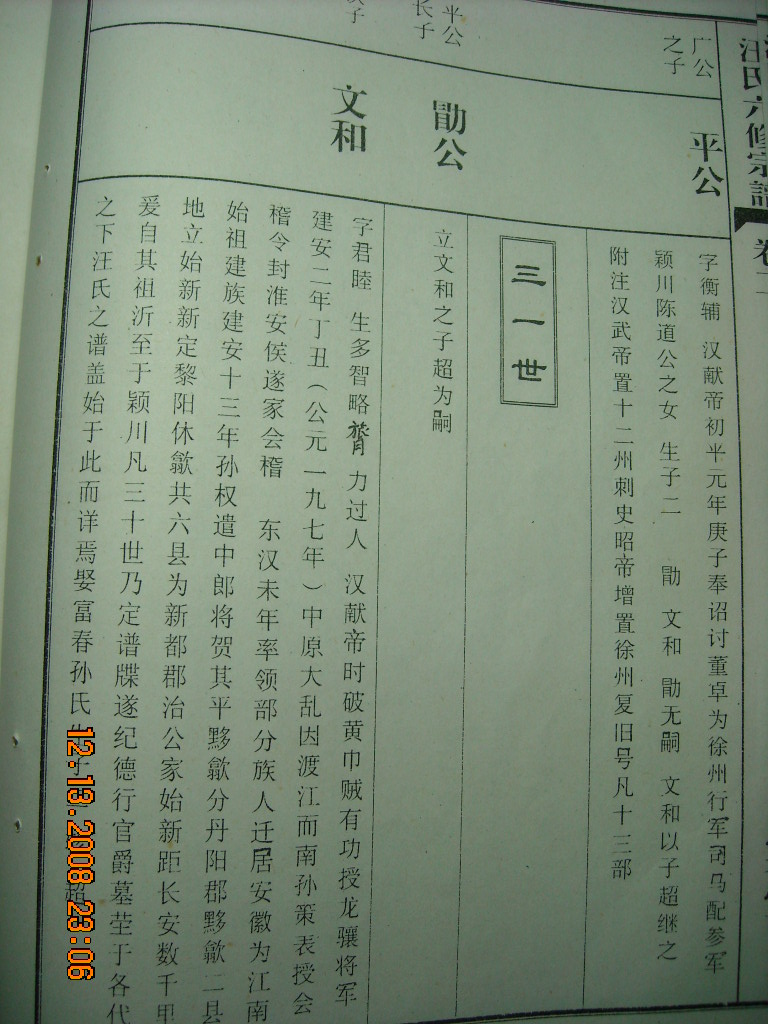 汪氏六修宗譜
卷二
广公
之子
平公
字衡辅 汉献帝初平元年庚子奉诏讨董卓为徐州行军司马配参军
颖川陈道公之女 生子二 勖 文和 勖无嗣 文和以子超继之
附注汉武帝置十二州刺史昭帝增置徐州复旧号凡十三部
三一世
平公
长子
勖公
立文和之子超为嗣
次子
文和
字君睦 生多智略膂力过人 汉献帝时破黄巾贼有功授龙骧将军
建安二年丁丑(公元一九七年)中原大乱因渡江而南孙策表授会
稽令封淮安侯遂家会稽 东汉末年率领部分族人迁居安徽为江南
始祖建族建安十三年孙权遣中郎将贺其平黟歙分丹阳郡黟歙二县
地立始新新定黎阳休歙共六县为新都郡治公家始新距长安数千里
爰自其祖沂至于颖川凡三十世乃定谱牒遂纪德行官爵墓茔于各代
之下汪氏之谱盖始于此而详焉娶富春孙氏生子 超
12.13.2008 23:06